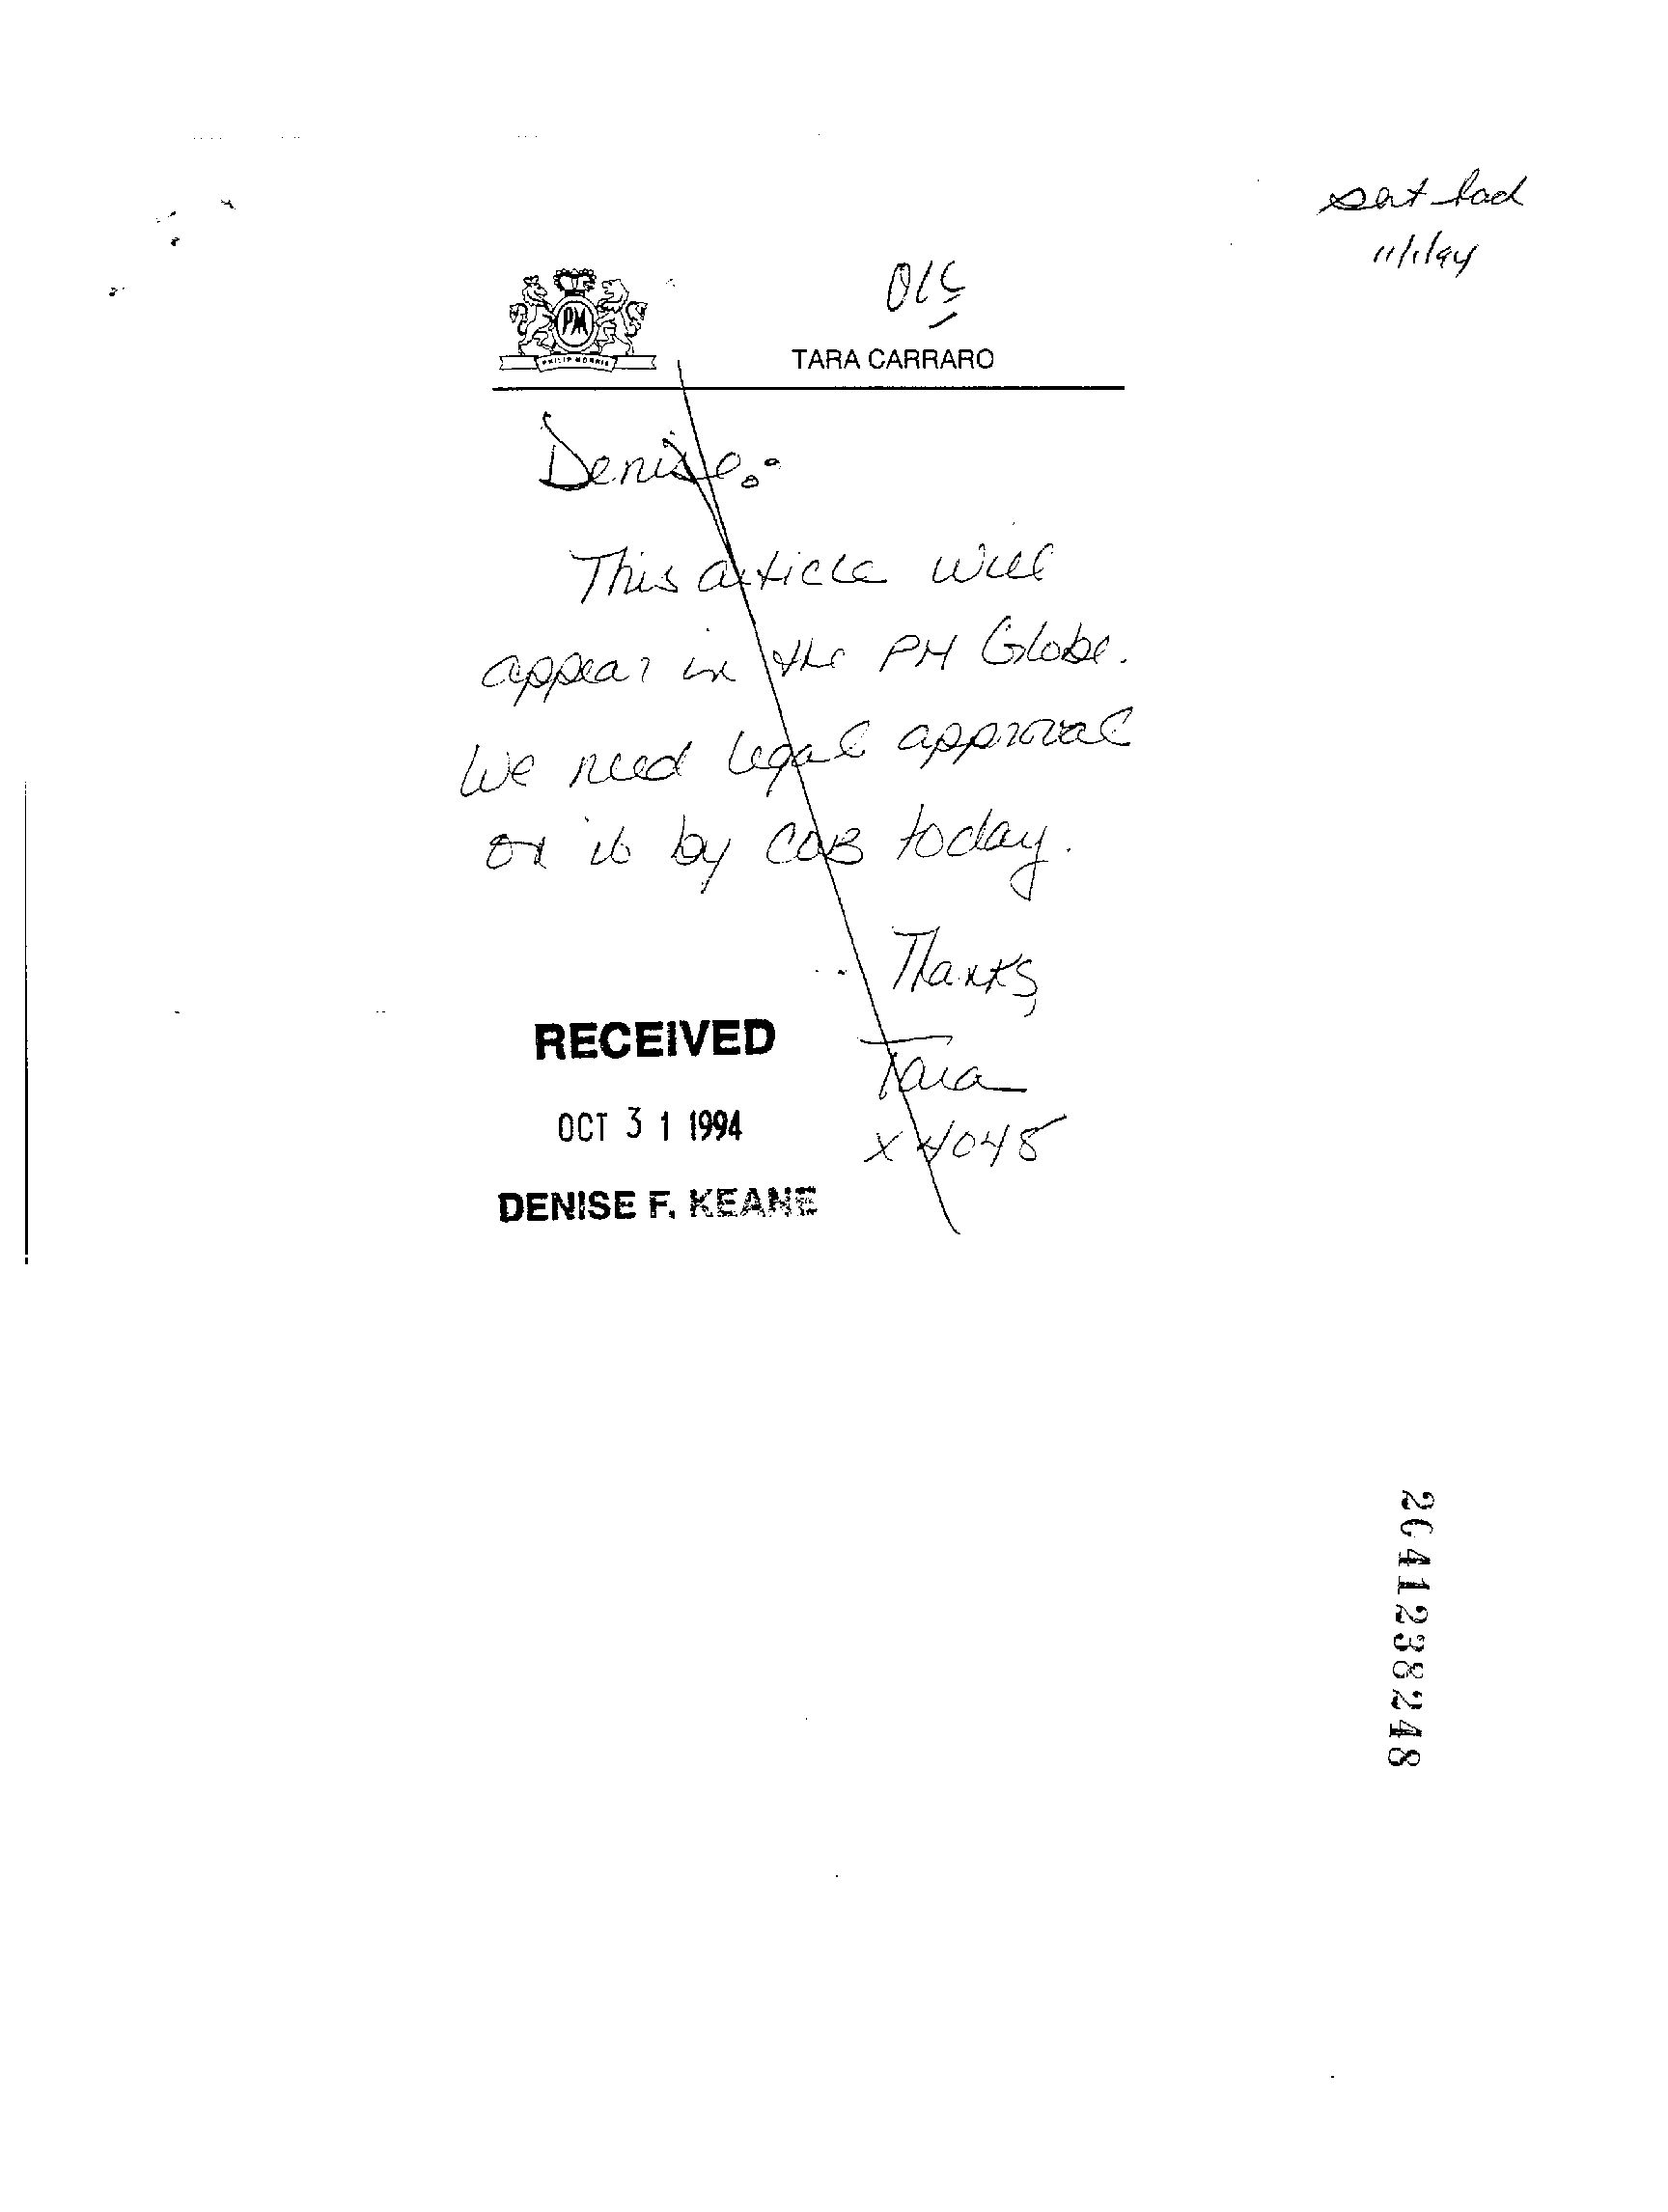 11/1/94
PM
PHILIP MORRIS
TARA CARRARO
Denise:
This article will
appear in the PM Globe.
We need legal approval
on it by COB today.
Thanks,
Tara
x4048
RECEIVED
OCT 31 1994
DENISE F. KEANE
2041238248